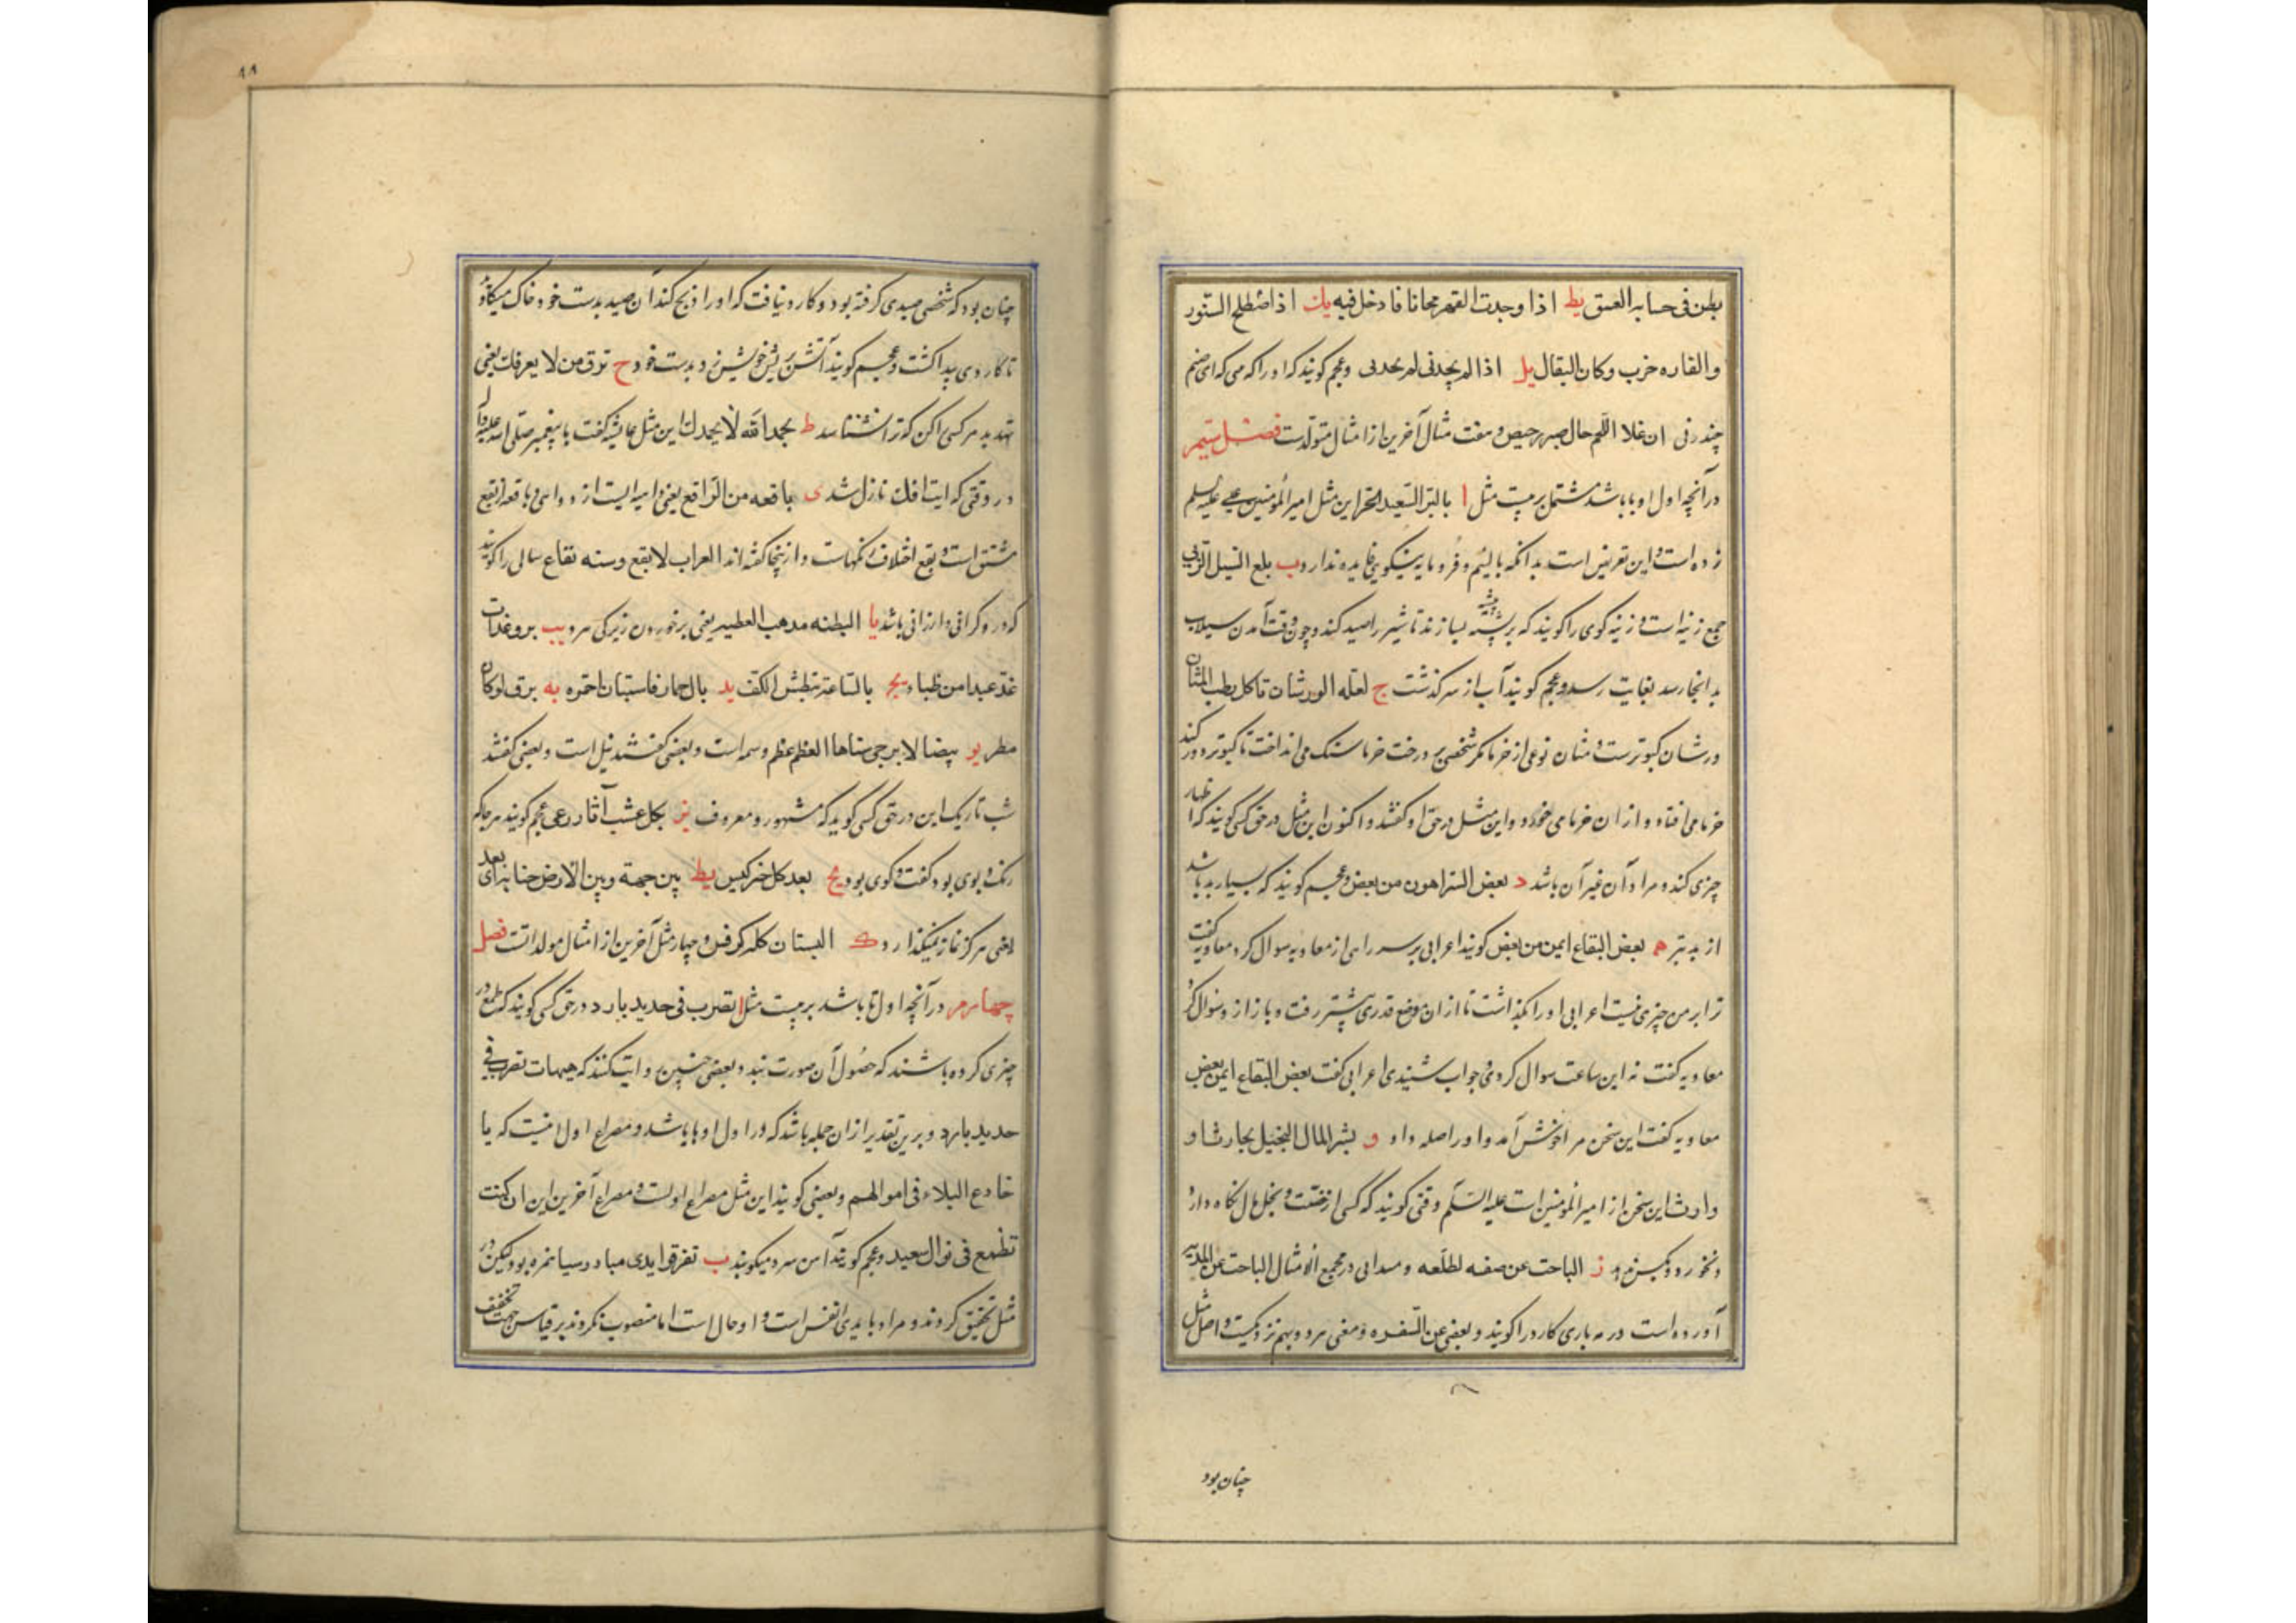 بطن فی حسابه العسق یط اذا وجدت القمر مجانا فادخل فیه یك اذا اضطلح السنور
والفاره خرب دکان البقال یل اذا لم یجدنی لم بحدنی وعجم کویند که او را که می که ای صنم
چند زنی ان غلا اللحم حال صبر رخیص و هفت مثال آخرین از امثال متولدست فصل سیم
در آنچه اول او با باشد مشتمل بر بیست مثل ا بالبر الستعبد الحر این مثل امیر المؤمنین علی علیه السلم
زده است و این تعریض است بدانکه با لئیم و فرومایه نیکویی فایده ندارد ب بلغ السیل الزبی
جمع زبیه است و زبیه کوی را کویند که بر پشته بسازند تا شیر را صید کند و چون وقت آمدن سیلاب
بدانجا رسد بغایت رسد و عجم کویند آب از سر کذشت ج لعله الورشان تاکل رطب المشان
ورشان کبوترست و مشان نوعی از خرما مکر شخصی بر درخت خرما سنک می انداخت تا کبوتر دور کند
خرما می افتاد و از ان خرما می خورد و این مثل در حق او کفتند و اکنون این مثل در حق کسی کویند که اظهار
چیزی کند و مراد آن غیر آن باشد د بعض الشر اهون من بعض و عجم کویند که بسیار بد باشد
از بد بتر ه بعض البقاع ایمن من بعض کویند اعرابی بر سر راهی از معاویه سوال کرد معاویه کفت
ترا بر من چیزی نیست اعرابی او را بکذاشت تا از ان موضع قدری پیشتر رفت و باز از و سوال کرد
معاویه کفت نه این ساعت سوال کردی و جواب شنیدی اعرابی کفت بعض البقاع ایمن بعض
معاویه کفت این سخن مرا خوش آمد و او را صله داد و بشر المال البخیل بحارث او
وارث این سخن از امیر المؤمنین است علیه السلم وقتی کویند که کسی از خست و بخل مال نکاه دارد
و نخورد و بکس ندهد ز الباحث عن حتفه لطلعه و میدانی در مجمع الامثال الباحث عن المدیه
آورده است و در مدیه باری کارد را کویند و بعضی عن الشفره و معنی هر دو بهم نزدیکست و اصل مثل
چنان بود
چنان بود که شخصی صیدی کرفته بود و کارد نیافت که او را ذبح کند آن صید بدست خود خاک میکاود
تا کاردی پیدا کشت و عجم کویند آتش پیش خویش نزد بدست خود ح ترق من لا یعرفك یعنی
تهدید مر کسی را کن که ترا نشناسد ط بحمد الله لا بحمدك این مثل عایشه کفت با پیغمبر صلی الله علیه و آله
در وقتی که ایت افك نازل شد ی باقعه من البواقع یعنی داهیه ایست از دواهی و باقعه از بقع
مشتق است و بقع اختلاف رنکهاست و از ینجا کفته اند الغراب لا بقع و سنه بقاع سالی را کویند
که در و کرانی و ارزانی باشد یا البطنه مدهب العطیر یعنی پر خوردن زیرکی ببرد یب برو غدات
غد عبدا من ظماء یج بالساعد تبطش الکف ید بال حمار فاستبان احمره یه برق لو کان
مطر یو بیضا لا یرجی سناها العظم عظم وسمه است و بعضی کفتند نیل است و بعضی کفتند
شب تاریک این در حق کسی کوید که مشهور و معروف یز بکل عشب آثار رعی عجم کویند هر جا که
رنک و بوی بود کفت و کوی بود یح بعد کل خر کیس یط بین جبهة و بین الارض جنایه بعد ای
یعنی هرکز نماز نمیکذارد ک البستان کله کرفس و چهار مثل آخرین از امثال مولداتست فصل
چهارم در آنچه اول تا باشد بر بیست مثل ا تضرب فی حدید بارد در حق کسی کویند که طمع در
چیزی کرده باشند که حصول آن صورت نبندد و بعضی چنین روایت کنند که هیهات تضرب فی
حدید بارد و برین تقدیر از ان جمله باشد که در اول او ها باشد و مصراع اول اینست که یا
خادع البخلاء فی اموالهم و بعضی کویند این مثل مصراع اولست و مصراع آخرین این ان کنت
تطمع فی نوال سعید و عجم کویند آهن سرد میکوبد ب تفرقوا ایدی سبا در سبا همزه بود لیکن در
مثل تخفیف کردند و مراد بایدی انفس است و او حال است اما منصوب نکردند بر قیاس جهت تخفیف
٨٨